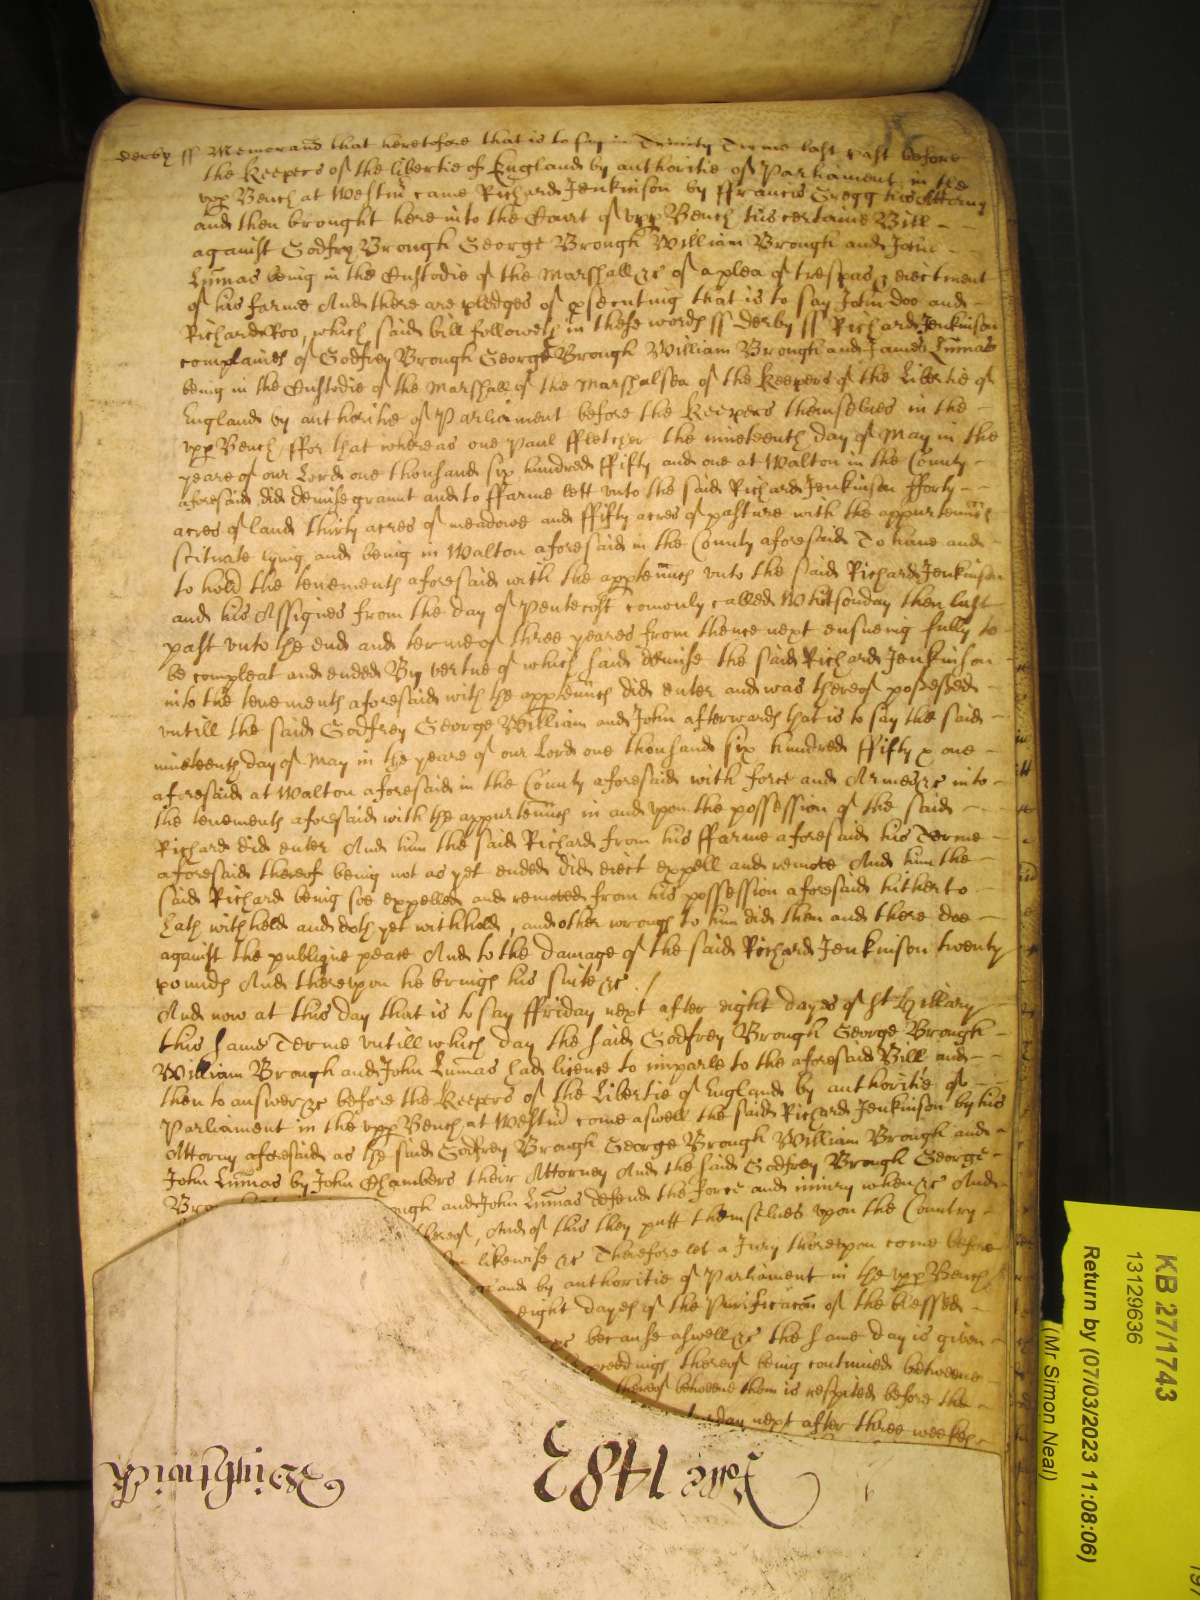 Derby ss Memorand that heretofore that is to say in Trinity Terme last past before
the Keepers of the libertie of England by authoritie of Parliament in the
upp Bench at Westm̄ came Richard Jenkinson by ffrancis Gregg his Attorny
and then brought here into the Court of upp Bench his certaine Bill
against Godfry Brough George Brough William Brough and John
Lum̄as being in the Custodie of the Marshall &c of a plea of trespas & eiectment
of his farme And there are pledges of psecuting that is to say John Doo and
Richard Roo, which said bill followeth in these words ss Derby ss Richard Jenkinson
complaineth of Godfrey Brough George Brough William Brough and James Lum̄as
being in the Custodie of the Marshall of the Marshalsea of the Keepers of the Libertie of
England by authoritie of Parliament before the Keepers themselves in the
upp Bench ffor that whereas one Paul ffletcher the nineteenth day of May in the
yeare of our Lord one thousand six hundred ffifty and one at Walton in the County
aforesaid did demise graunt and to ffarme lett unto the said Richard Jenkinson fforty
acres of land thirty acres of meadowe and ffifty acres of pasture with the appurten̄ncs
scituate lying and being in Walton aforesaid in the County aforesaid To have and
to hold the tenements aforesaid with the apptennc̄s unto the said Richard Jenkinson
and his Assignes from the day of Pentecost comonly called Whitsonday then last
past unto the end and terme of three yeares from thence next ensueing fully to
be compleat and ended By vertue of which said demise the said Richard Jenkinson
into the tenements aforesaid with the apptennc̄s did enter and was thereof possessed
untill the said Godfrey George William and John afterwards that is to say the said
nineteenth day of May in the yeare of our Lord one thousand six hundred ffifty & one
aforesaid at Walton aforesaid in the County aforesaid with force and Armes &c into
the tenements aforesaid with the appurtennc̄s in and upon the possession of the said
Richard did enter And him the said Richard from his ffarme aforesaid his Terme
aforesaid thereof being not as yet ended did eiect expell and remove And him the
said Richard being soe expelled and removed from his possession aforesaid hitherto
hath withheld and doth yet withhold, and other wrongs to him did then and there doe
against the publique peace And to the damage of the said Richard Jenkinson twenty
pounds And thereupon he brings his suite &c /
And now at this day that is to say ffriday next after eight dayes of St Hillary
this same Terme untill which day the said Godfrey Brough George Brough
William Brough and John Lum̄as had licence to imparle to the aforesaid Bill and
then to answer &c before the Keepers of the Libertie of England by authoritie of
Parliament in the upp Bench at Westm̄ come aswell the said Richard Jenkinson by his
Attorny aforesaid as the said Godfrey Brough George Brough William Brough and
John Lum̄as by John Chambers their Attorney And the said Godfrey Brough George
Bro ough and John Lum̄as defend the force and iniury when &c And
thereof, And of this they putt themselves upon the Country
likewise &c Therefore let a Jury thereupon come before
and by authoritie of Parliament in the upp Bench
eight dayes of the Purificac̄on of the blessed
&c because aswell &c the same day is given
proceedings thereof being continued betweene
thereof betweene them is respited before the
next after three weekes
Ro 1483
KB 27/1743
13129636
Return by (07/03/2023 11:08:06)
(Mr Simon Neal)